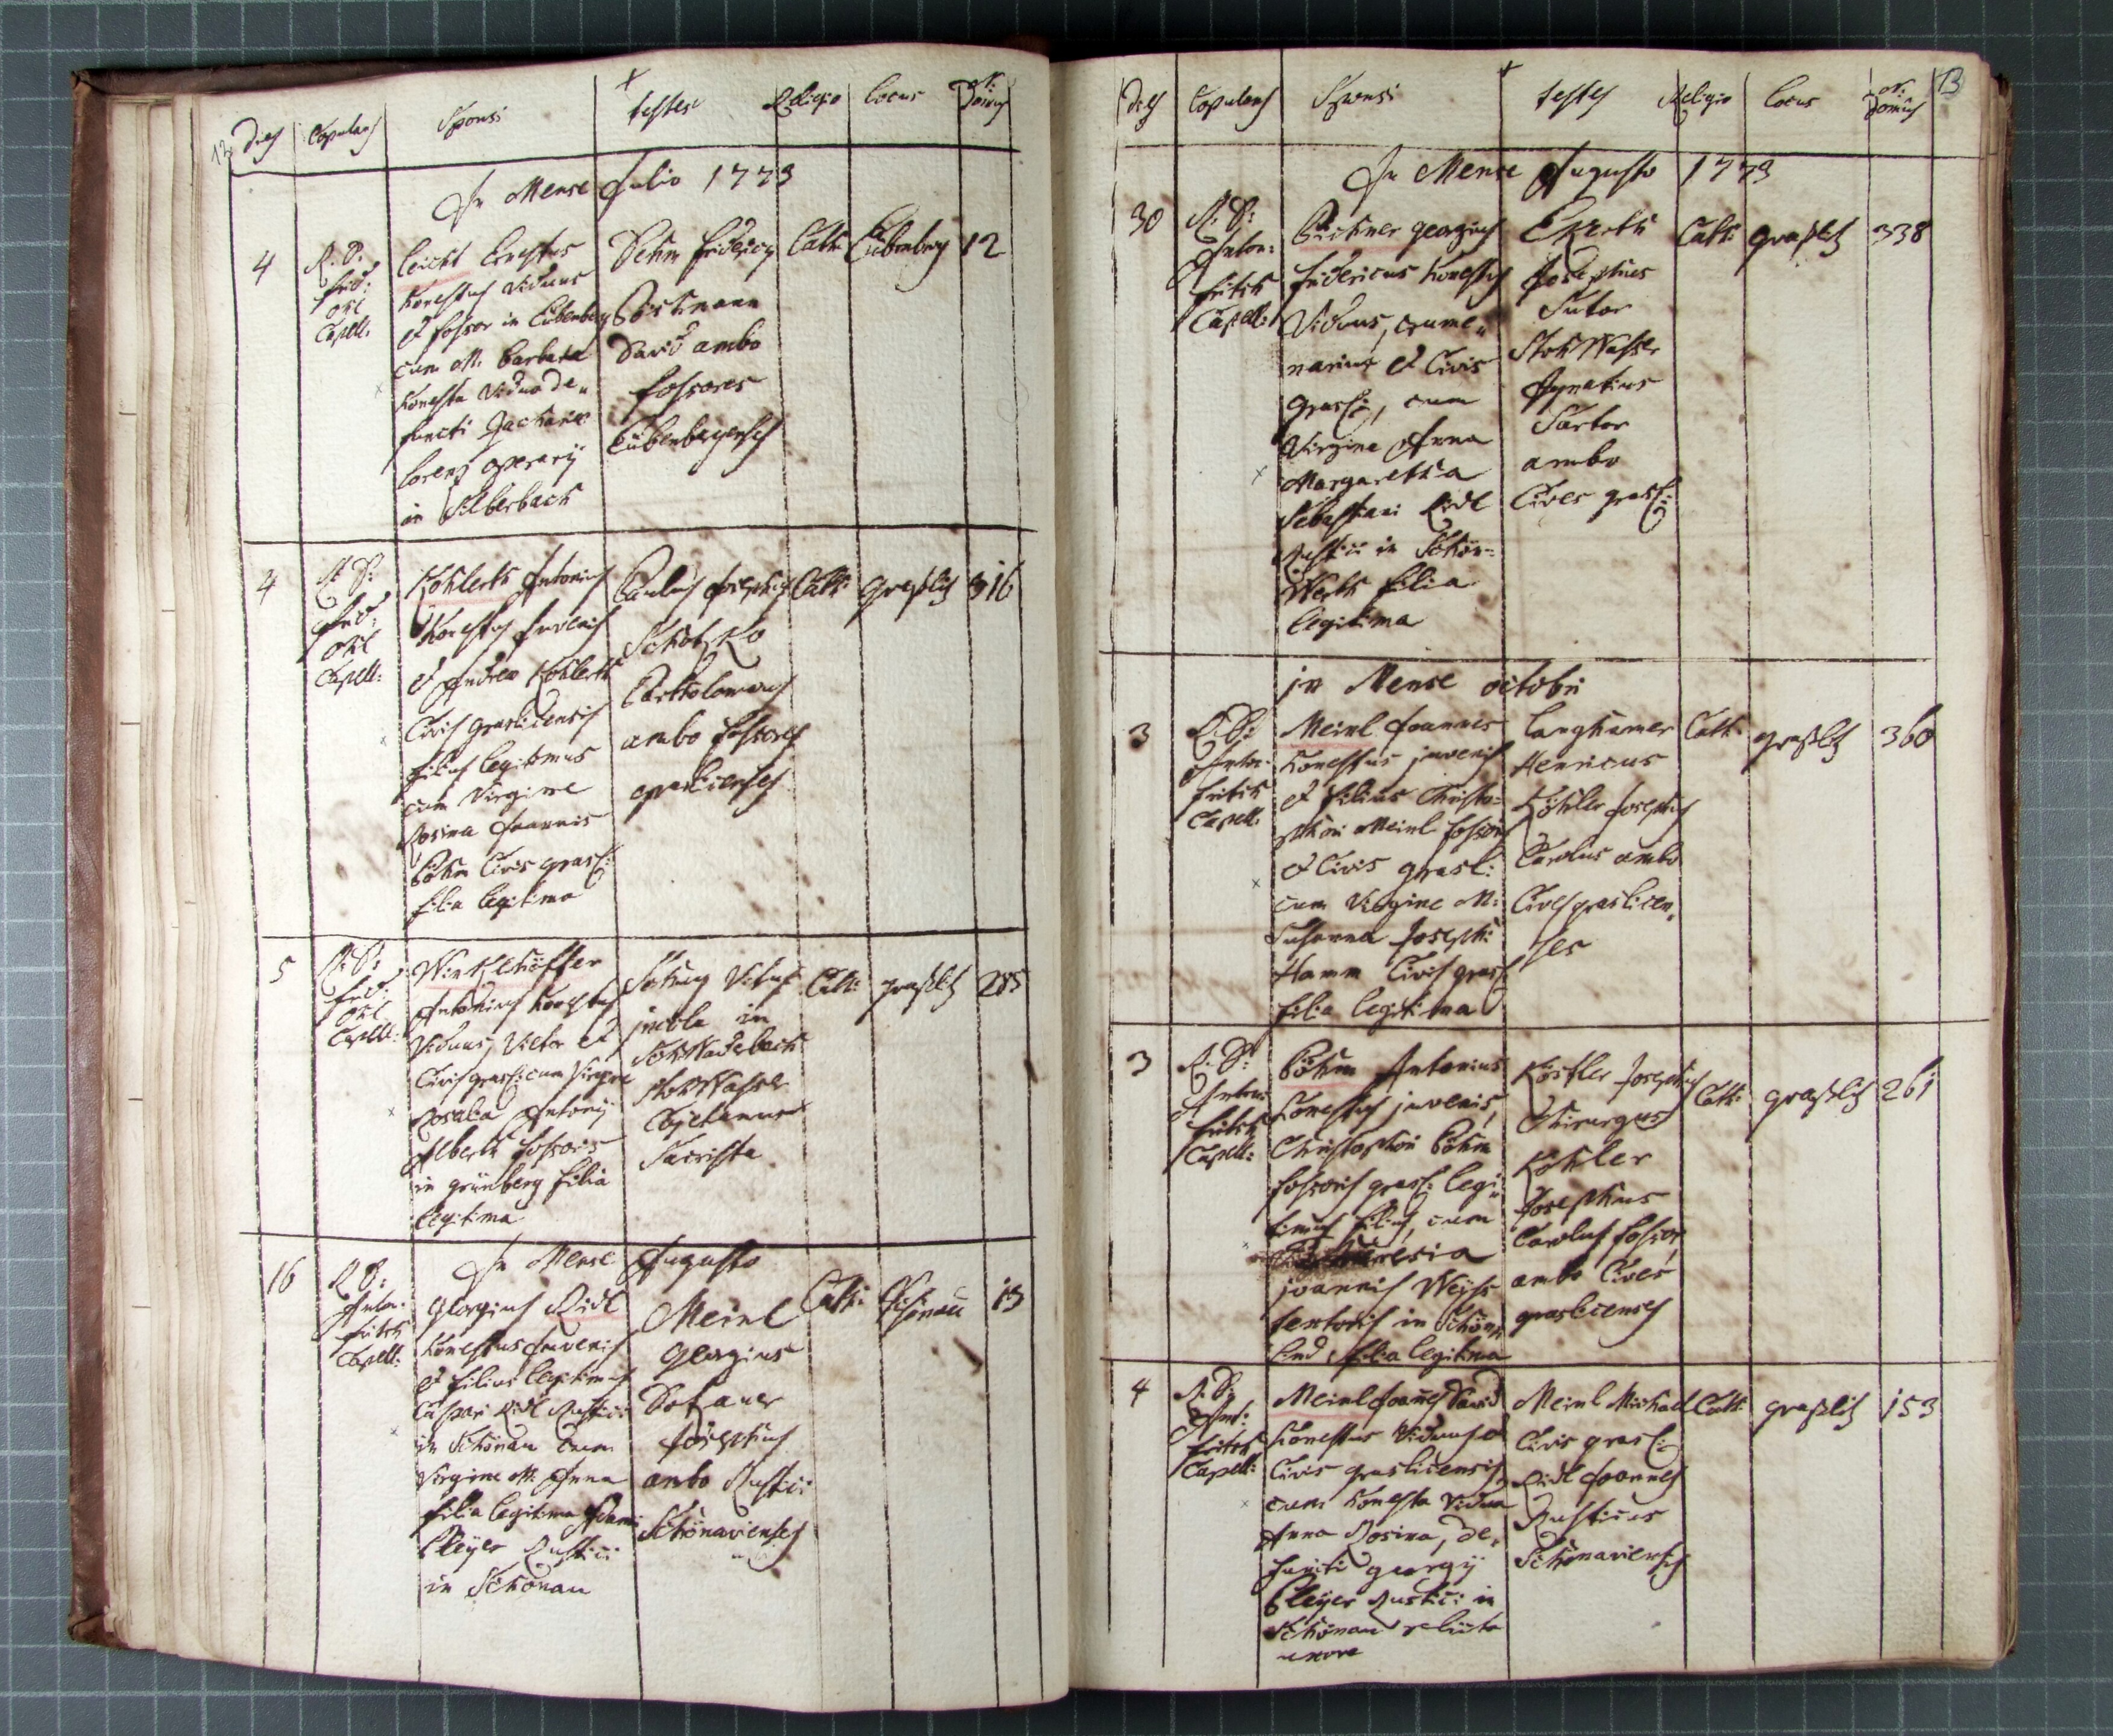 12.
dies Copulans Sponsi testes Religio Locus N: Domus
In Mense Julio 1773
4
R. D.
Frid:
Capell:
Leicht Ernestus
honestus Viduus
et fossor in Eübenberg
cum M. Barbara
honesta Vidua de„
functi Zachariae
Lorenz operarij
in Silberbach
Dehm Fridericy
David ambo
fossores
Eübenbergenses
Cath: Eübenberg 12
4
R. D:
Frid:
Capell:
Kohlerth Antonius
honestus Juvenis
et Andreæ Kohlerth
Civis graslicensis
filius legitimus
cum Virgine
Rosina Joannis
Böhm Civis grasl:
filia legitima
Paulus Josephus
Bartholomæus
ambo fossores
graslicenses
Cath: graßlitz 316
5
R: D:
Frid:
Capell:
Winklhöffer
Antonius honestus
Viduus, Victor et
Civis grasl: cum Virgine
Rosalia Antonij
Alberth fossoris
in grünberg filia
legitima
Vitus
incola in
Schwaderbach
Stohwasser
Cajetanus
Sacrista
Cath: graßlitz 285
In Mense Augusto
16
R. D:
Anton:
Fritsch
Capell:
Georgius Ridl
honestus Juvenis
et filius legitimus
Caspari Ridl Rustici
in Schönau cum
Virgine M: Anna
filia legitima Adami
Bleyer Rustici
in Schönau
Meinl
Georgius
Dotzauer
Josephus
ambo Rustici
Schönavienses
Cath: Schönau 13
13
dies Copulans Sponsi testes Religio Locus N: Domus
In Mense Augusto 1773
30
R: D:
Anton:
Fritsch
Capell:
Georgius
Fridericus honestus
Viduus, crume„
narius et Civis
grasl:, cum
Virgine Anna
Margaretha
Sebastiani Ridl
Rustici in Schön-
werth filia
legitima
Josephus
Sutor
Stohwasser
Ignatius
Sartor
ambo
Cives grasl:
Cath: graßlitz 338
in Mense octobri
3
R. D:
Anton:
Fritsch
Capell:
Meinl Joannes
honestus juvenis
et filius Christo-
phori Meinl fossoris
et Civis grasl:
cum Virgine M:
Susanna Josephi
Hamm Civis grasl:
filia legitima
Langhamer
Henricus
Köhler Josephus
Carolus ambo
Cives graslicen„
ses
Cath: graßlitz 360
3
R. D:
Anton:
Fritsch
Capell:
Böhm Antonius
honestus juvenis,
Christophori Böhm
fossoris grasl: legi„
timus filius, cum
Theresia
joannis Weiss
textoris in Schön„
lind, filia legitima
Köstler Josephus
Chirurgus
Köhler
Josephus
Carolus fossor,
ambo Cives
graslicenses
Cath: graßlitz 261
4
R: D:
Ant:
Fritsch
Capell:
Meinl Joannes David
honestus Viduus et
Civis graslicensis,
cum honesta Vidua
Anna Rosina, de„
functi georgij
Bleyer Rustici in
Schönau relicta
uxore
Meinl Michael
Civis grasl:
Ridl Joannes
Rusticus
Schönaviensis
Cath: graßlitz 153